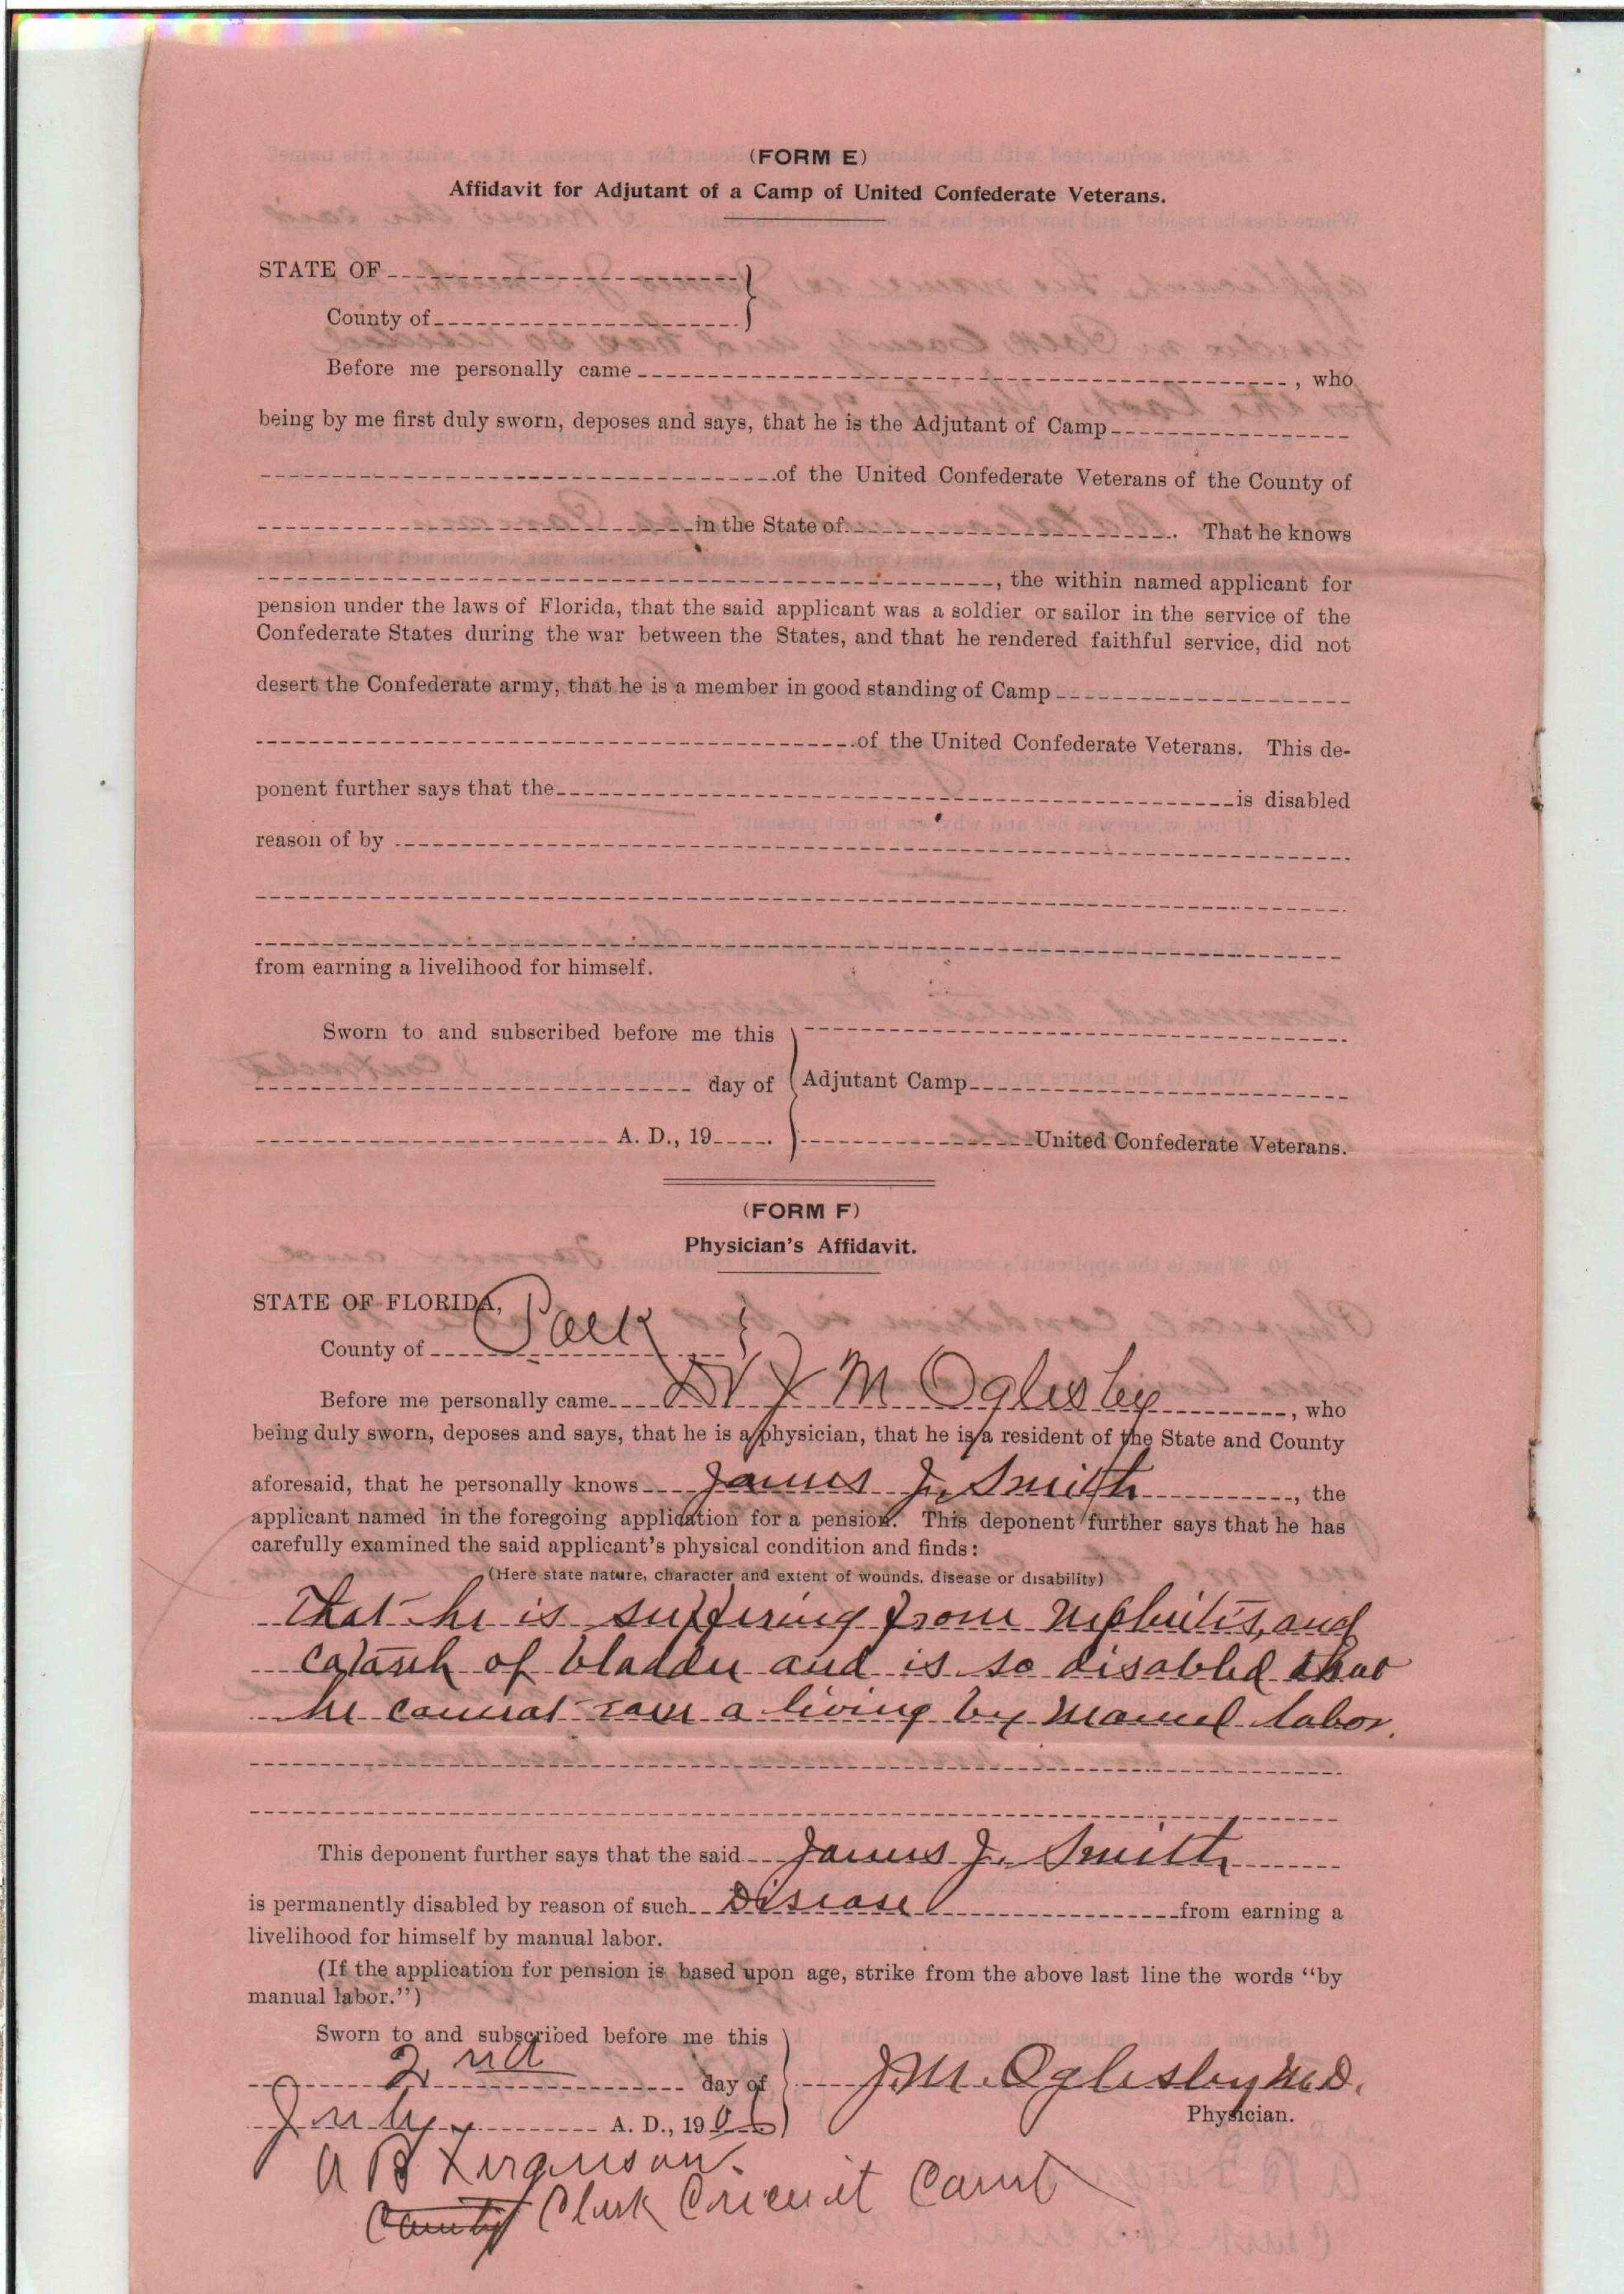 (FORM E)
Affidavit for Adjutant of a Camp of United Confederate Veterans.
STATE OF
County of
Before me personally came , who
being by me first duly sworn, deposes and says, that he is the Adjutant of Camp
of the United Confederate Veterans of the County of
in the State of . That he knows
, the within named applicant for
pension under the laws of Florida, that the said applicant was a soldier or sailor in the service of the
Confederate States during the war between the States, and that he rendered faithful service, did not
desert the Confederate army, that he is a member in good standing of Camp
of the United Confederate Veterans. This de-
ponent further says that the is disabled
reason of by
from earning a livelihood for himself.
Sworn to and subscribed before me this
day of Adjutant Camp
A. D., 19 . United Confederate Veterans.
(FORM F)
Physician's Affidavit.
STATE OF FLORIDA,
County of Polk
Before me personally came Dr J M Oglesby , who
being duly sworn, deposes and says, that he is a physician, that he is a resident of the State and County
aforesaid, that he personally knows James J. Smith , the
applicant named in the foregoing application for a pension. This deponent further says that he has
carefully examined the said applicant's physical condition and finds:
(Here state nature, character and extent of wounds, disease or disability)
That he is suffering from Nephritis, and
catarrh of bladder and is so disabled that
he cannot earn a living by manuel labor.
This deponent further says that the said James J. Smith
is permanently disabled by reason of such Disease from earning a
livelihood for himself by manual labor.
(If the application for pension is based upon age, strike from the above last line the words "by
manual labor.")
Sworn to and subscribed before me this
2nd day of J.M. Oglesby M.D.
July A. D., 190 Physician.
A B Ferguson.
County Clerk Circuit Court